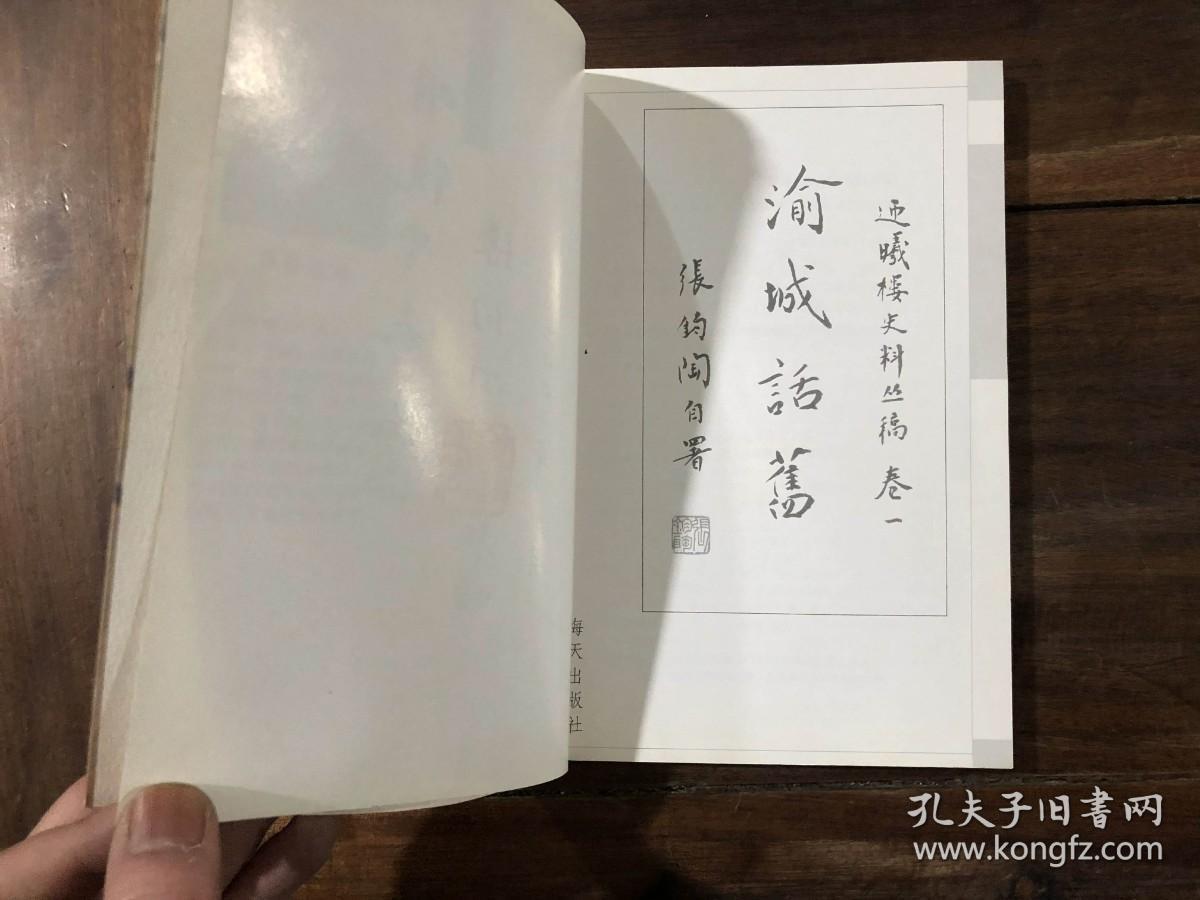 迎曦楼史料丛稿 卷一
渝城話舊
張鈞陶自署
海天出版社
孔夫子旧書网
www.kongfz.com